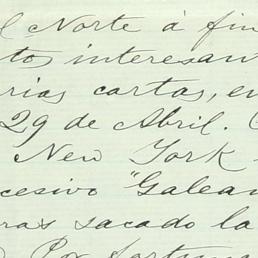 l Norte á fin
tos interesan
rias cartas, en
29 de Abril.
New York
cesivo "Galean
ras sacado la
Por fortuna